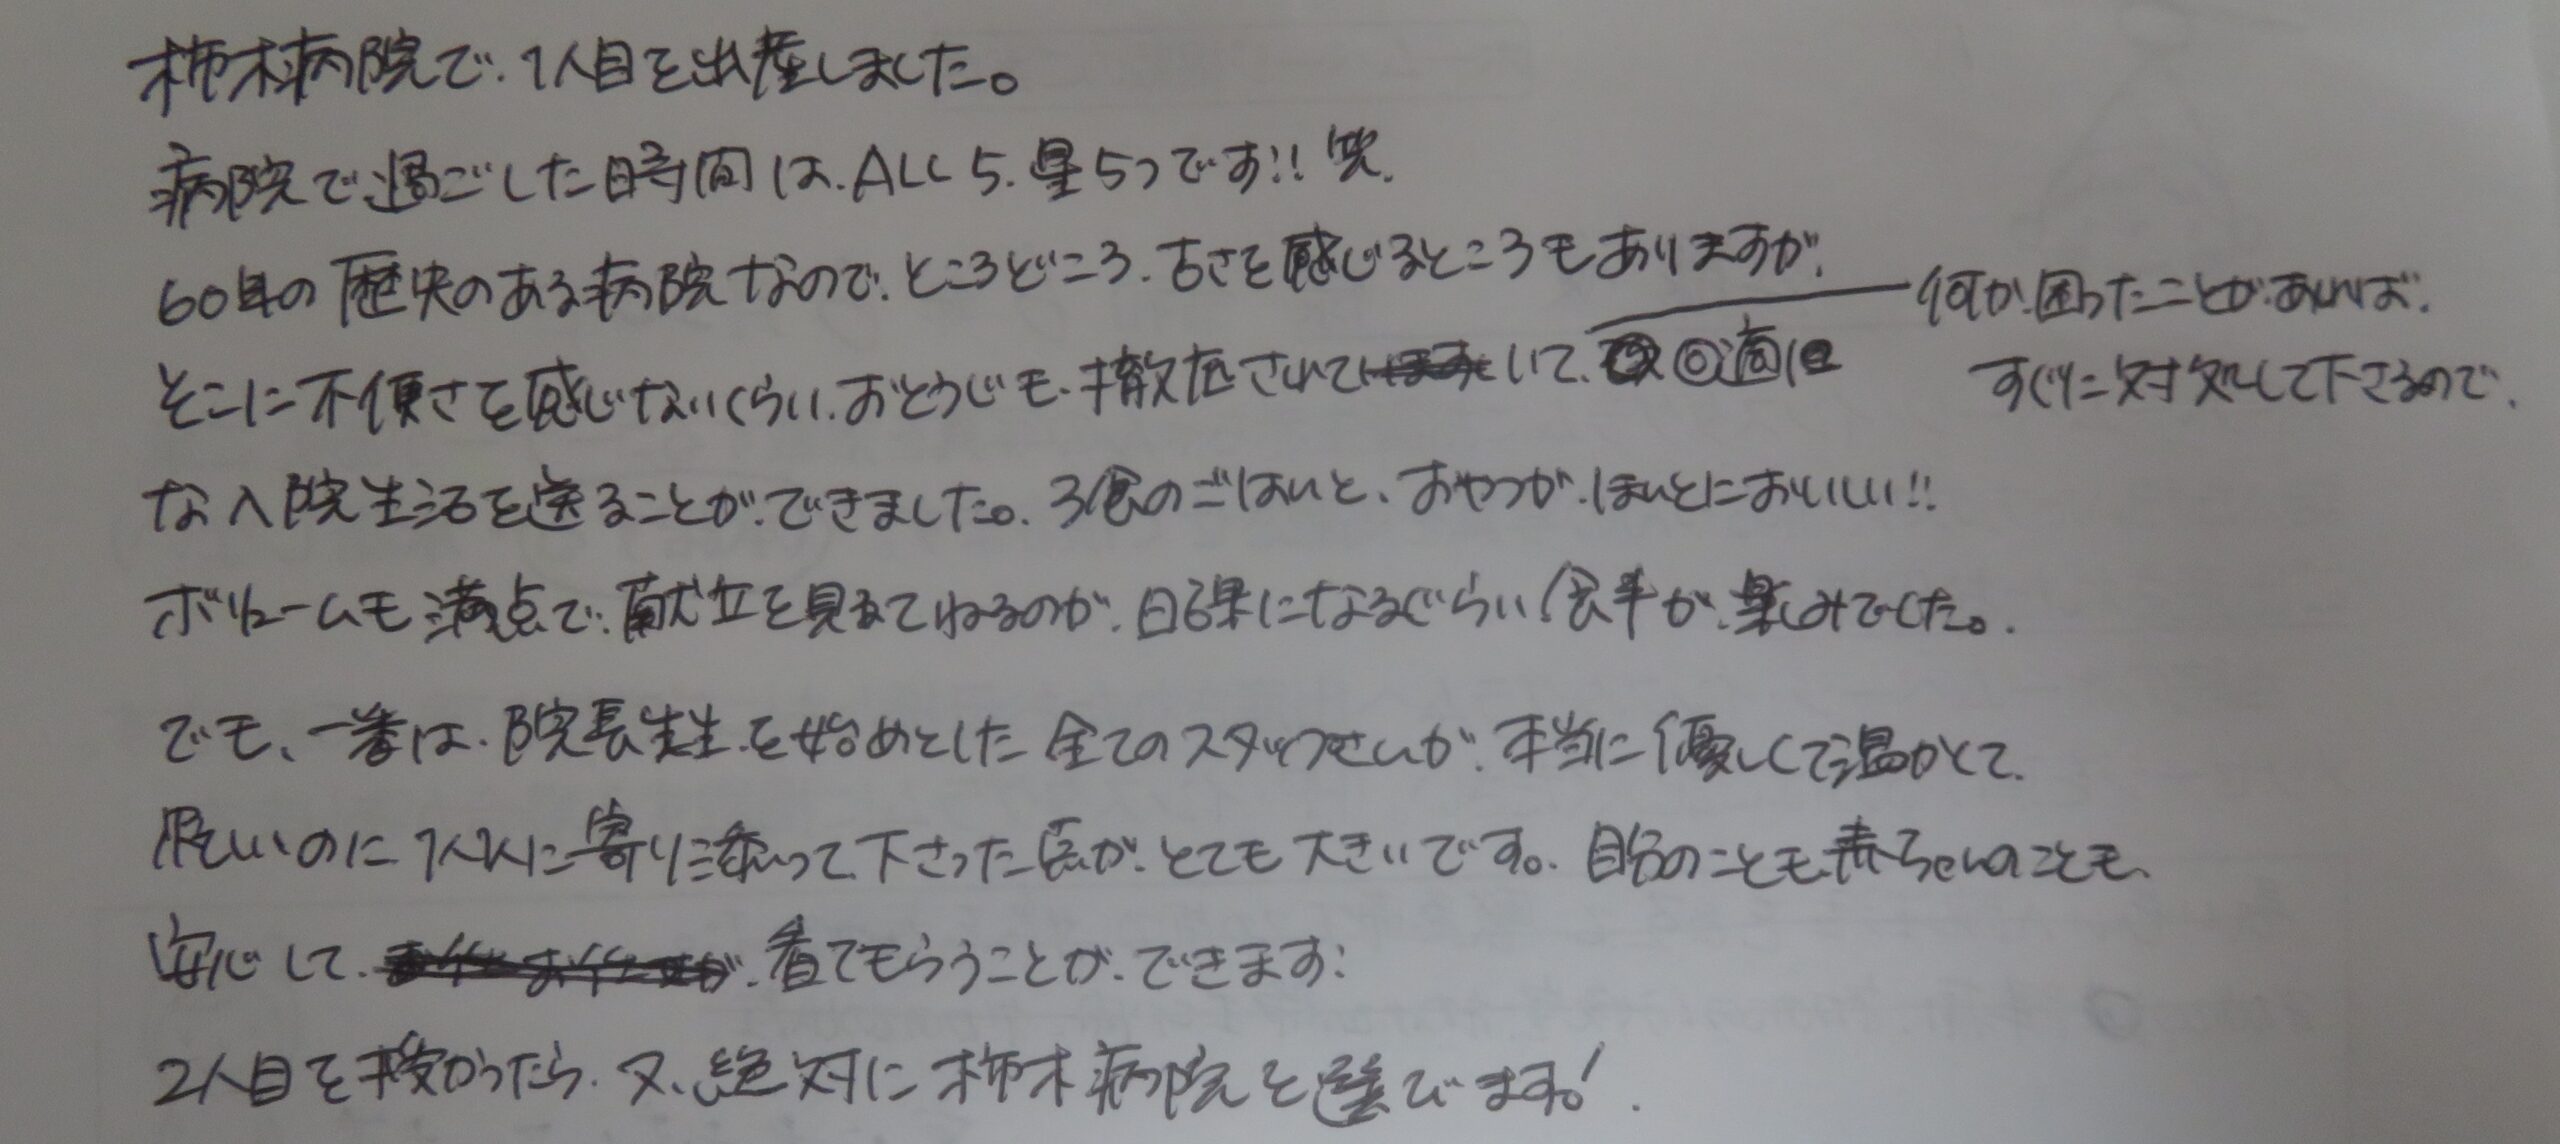 柿木病院で、1人目を出産しました。
病院で過ごした時間は、ALL 5、星5つです!! 笑、
60年の歴史のある病院なので、ところどころ、古さを感じるところもありますが、
何か、困ったことが、あれば、
すぐに対処して下さるので、
そこに不便さを感じないくらい、おそうじも、徹底されていて、適
な入院生活を送ることが、できました。3食のごはんと、おやつが、ほんとにおいしい!!
ボリュームも満点で、献立を見てねるのが、日課になるぐらい食事が、楽しみでした。
でも、一番は、院長先生を始めとした全てのスタッフさんが、本当に優しくて温かくて、
忙しいのに1人1人に寄り添って下さった点が、とても大きいです。自分のことも赤ちゃんのことも、
安心して、看てもらうことが、できます:
2人目を授かったら、又、絶対に柿木病院を選びます!